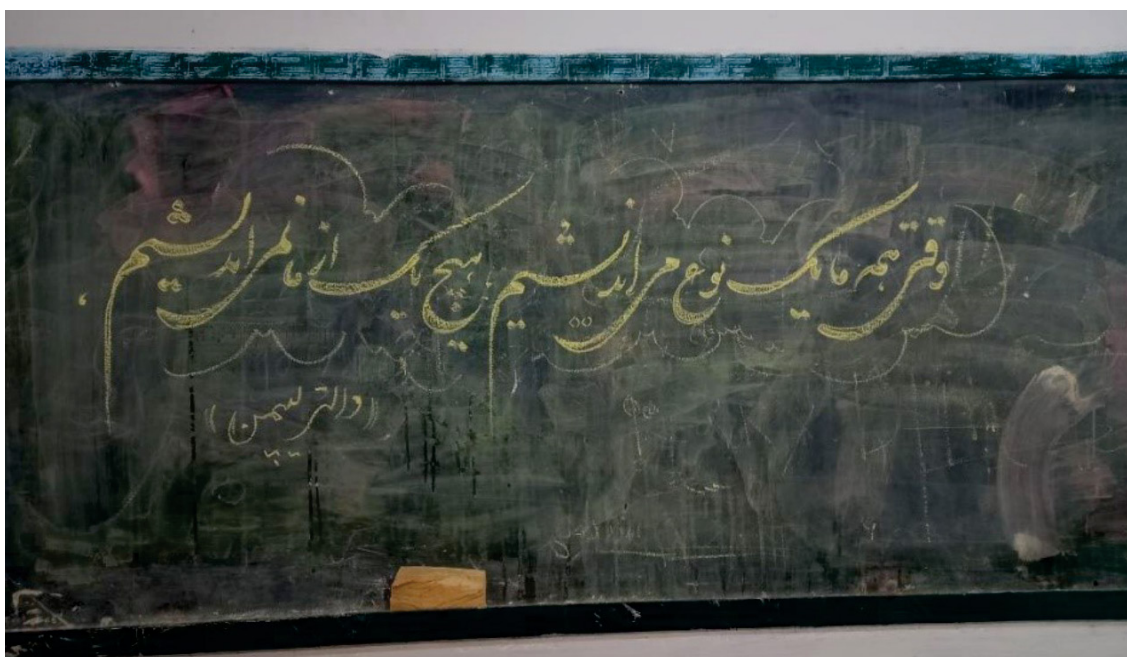 وقتی همه ما یک نوع می اندیشیم، هیچ یک از ما نمی اندیشیم.
(( والتر لیپمن ))